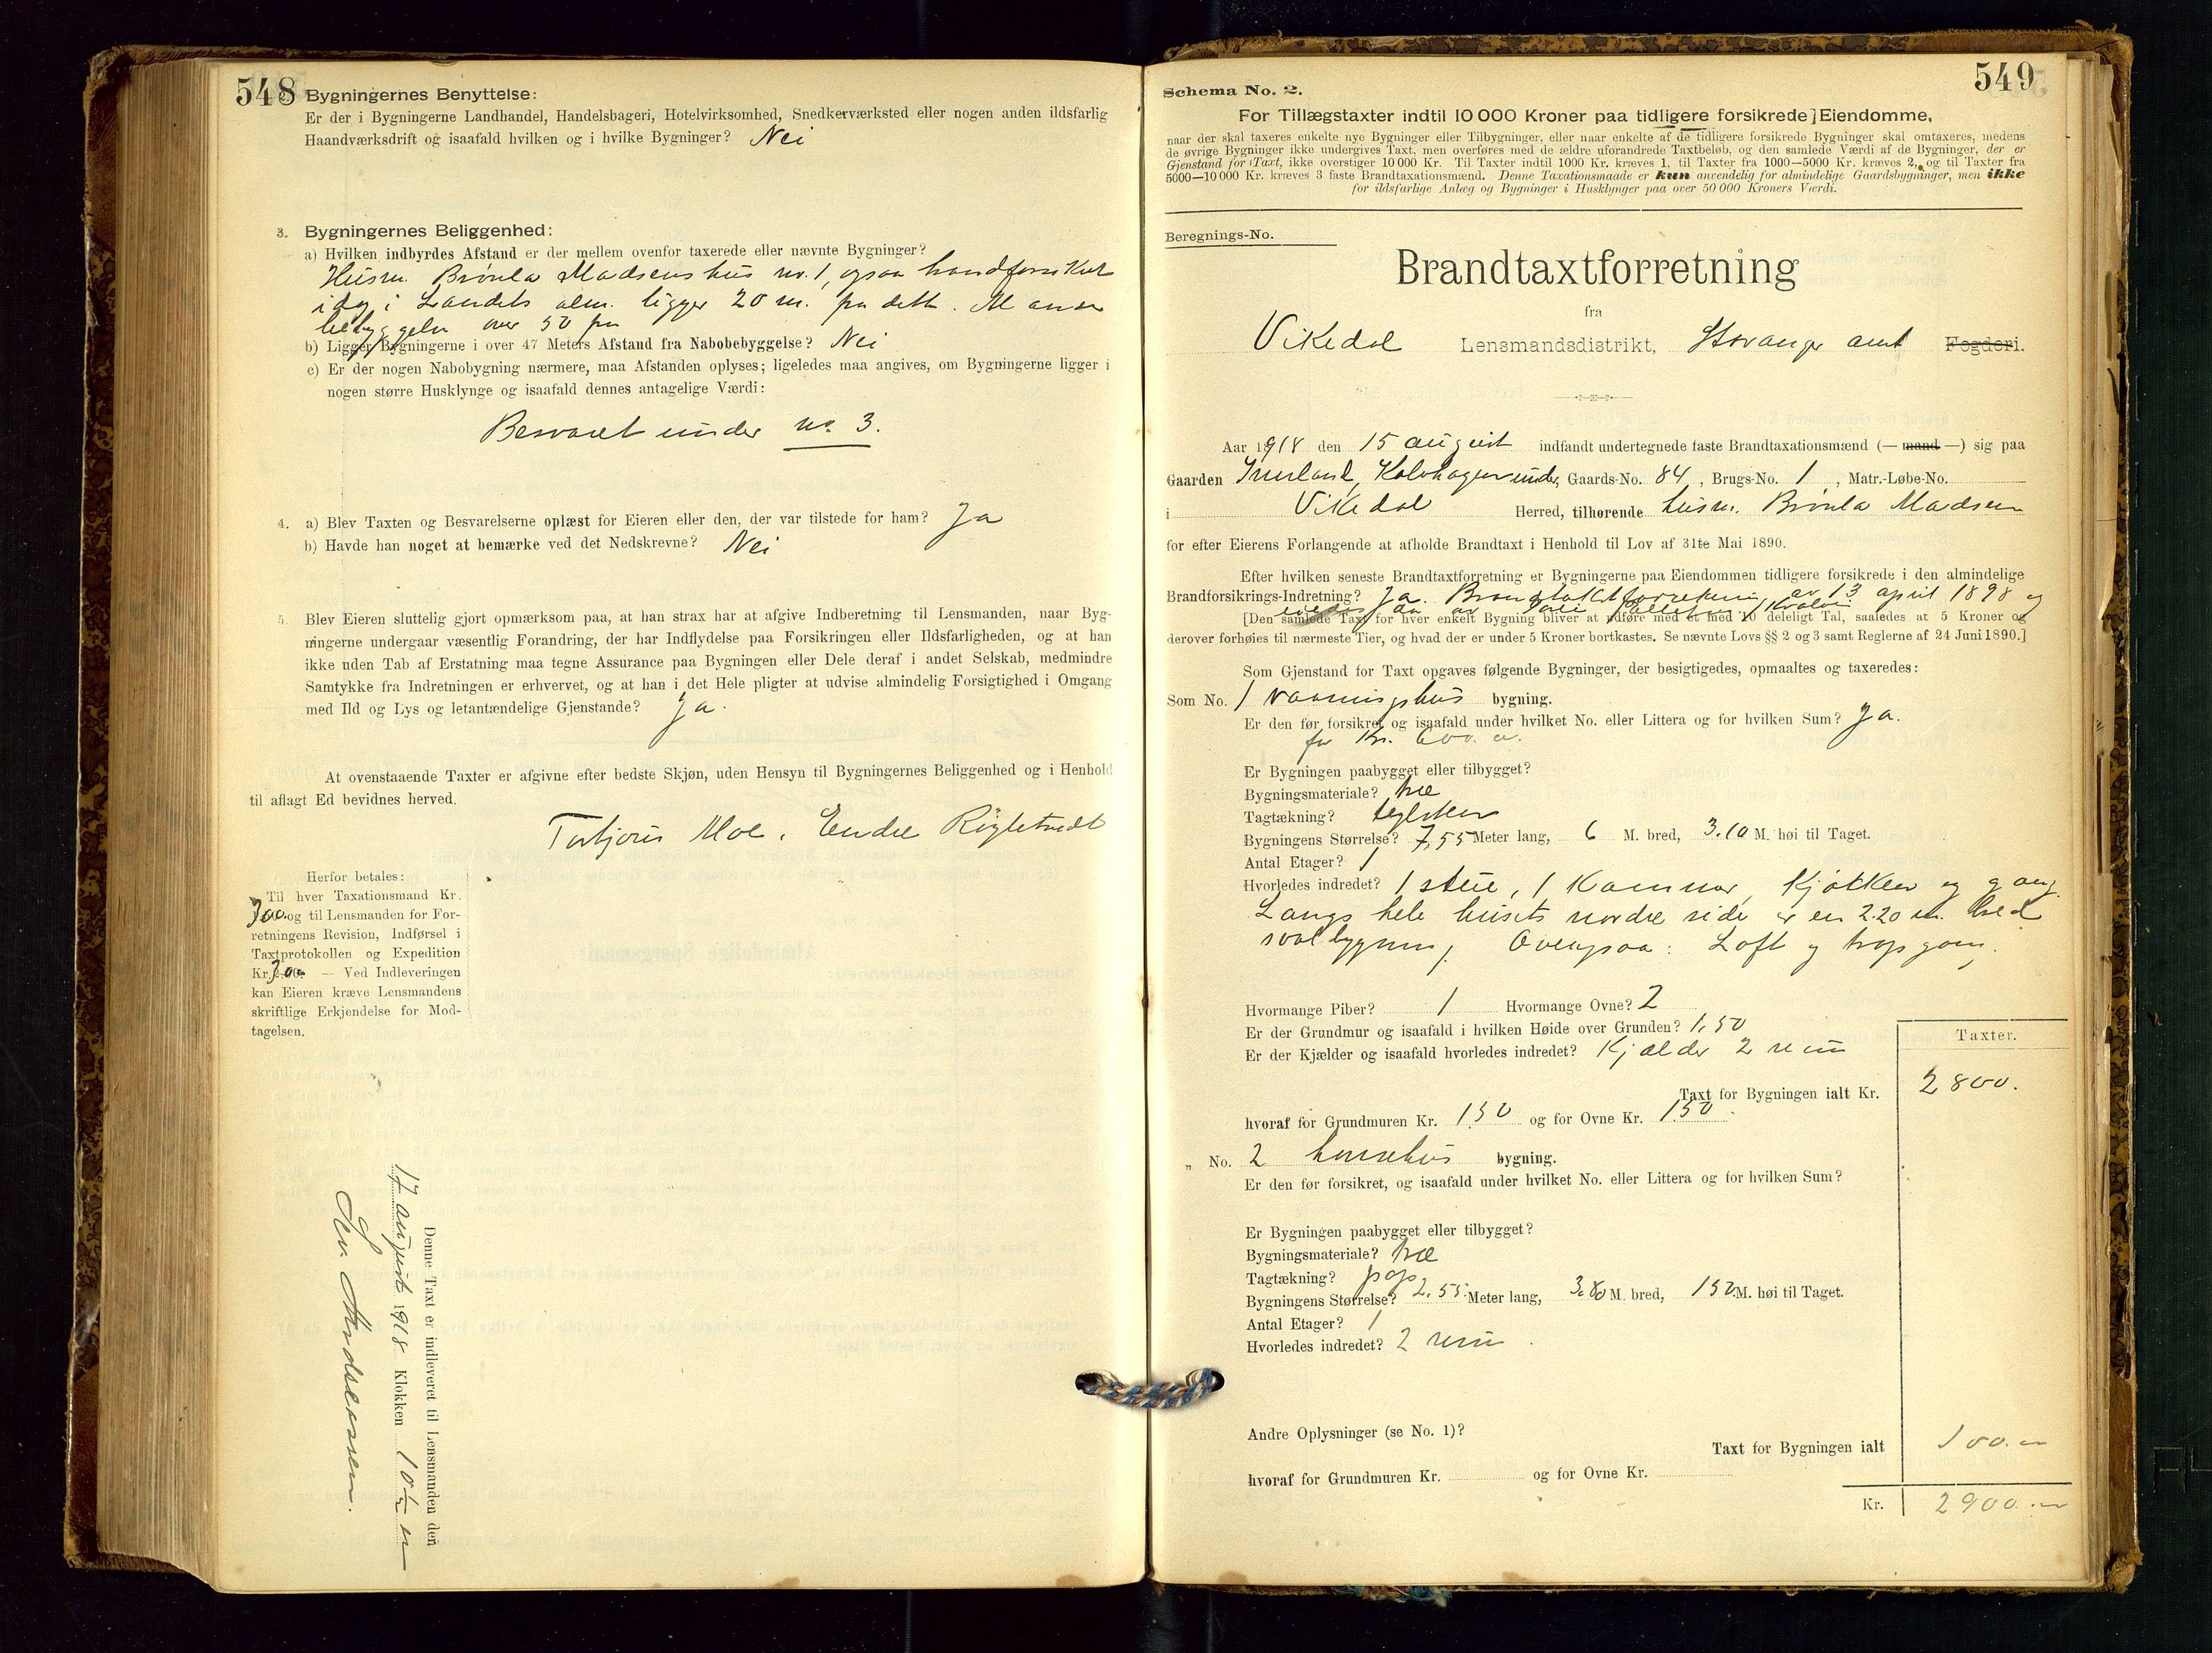 548
Bygningernes Benyttelse:
Er der i Bygningerne Landhandel, Handelsbageri, Hotelvirksomhed, Snedkerværksted eller nogen anden ildsfarlig
Haandværksdrift og isaafald hvilken og i hvilke Bygninger? Nei
3. Bygningernes Beliggenhed:
a) Hvilken indbyrdes Afstand er der mellem ovenfor taxerede eller nævnte Bygninger?
Husm. Madsens hus no. 1, ogsaa
i dag i Landets alm. ligger 20 m. fra dette. Al anden
bebyggelse over 50 fra
b) Ligger Bygningerne i over 47 Meters Afstand fra Nabobebyggelse? Nei
c) Er der nogen Nabobygning nærmere, maa Afstanden oplyses; ligeledes maa angives, om Bygningerne ligger i
nogen større Husklynge og isaafald dennes antagelige Værdi:
Besvaret under no 3.
4. a) Blev Taxten og Besvarelserne oplæst for Eieren eller den, der var tilstede for ham? Ja
b) Havde han noget at bemærke ved det Nedskrevne? Nei
5. Blev Eieren sluttelig gjort opmærksom paa, at han strax har at afgive Indberetning til Lensmanden, naar Byg-
ningerne undergaar væsentlig Forandring, der har Indflydelse paa Forsikringen eller Ildsfarligheden, og at han
ikke uden Tab af Erstatning maa tegne Assurance paa Bygningen eller Dele deraf i andet Selskab, medmindre
Samtykke fra Indretningen er erhvervet, og at han i det Hele pligter at udvise almindelig Forsigtighed i Omgang
med Ild og Lys og letantændelige Gjenstande? Ja.
At ovenstaaende Taxter er afgivne efter bedste Skjøn, uden Hensyn til Bygningernes Beliggenhed og i Henhold
til aflagt Ed bevidnes herved.
Moe. Endre
Herfor betales:
Til hver Taxationsmand Kr.
3.00 og til Lensmanden for For-
retningens Revision, Indførsel i
Taxtprotokollen og Expedition
Kr. 3.00 — Ved Indleveringen
kan Eieren kræve Lensmandens
skriftlige Erkjendelse for Mod-
tagelsen.
Denne Taxt er indleveret til Lensmanden den
17 august 1918 Klokken 10
549
Schema No. 2.
For Tillægstaxter indtil 10 000 Kroner paa tidligere forsikrede Eiendomme,
naar der skal taxeres enkelte nye Bygninger eller Tilbygninger, eller naar enkelte af de tidligere forsikrede Bygninger skal omtaxeres, medens
de øvrige Bygninger ikke undergives Taxt, men overføres med de ældre uforandrede Taxtbeløb, og den samlede Værdi af de Bygninger, der er
Gjenstand for Taxt, ikke overstiger 10 000 Kr. Til Taxter indtil 1000 Kr. kræves 1, til Taxter fra 1000—5000 Kr. kræves 2, og til Taxter fra
5000—10 000 Kr. kræves 3 faste Brandtaxationsmænd. Denne Taxationsmaade er kun anvendelig for almindelige Gaardsbygninger, men ikke
for ildsfarlige Anlæg og Bygninger i Husklynger paa over 50 000 Kroners Værdi.
Beregnings-No.
Brandtaxtforretning
fra
Vikedal Lensmandsdistrikt, Stavanger amt Fogderi.
Aar 1918 den 15 august indfandt undertegnede faste Brandtaxationsmænd (— mand —) sig paa
Gaarden under Gaards-No. 84, Brugs-No. 1, Matr.-Løbe-No.
i Vikedal Herred, tilhørende husm. Madsen
for efter Eierens Forlangende at afholde Brandtaxt i Henhold til Lov af 31te Mai 1890.
Efter hvilken seneste Brandtaxtforretning er Bygningerne paa Eiendommen tidligere forsikrede i den almindelige
Brandforsikrings-Indretning? Ja. Brandtaktforretning av 13 april 1898 og
[Den samlede Taxt for hver enkelt Bygning bliver at udføre med et med 10 deleligt Tal, saaledes at 5 Kroner og
derover forhøies til nærmeste Tier, og hvad der er under 5 Kroner bortkastes. Se nævnte Lovs §§ 2 og 3 samt Reglerne af 24 Juni 1890.]
Som Gjenstand for Taxt opgaves følgende Bygninger, der besigtigedes, opmaaltes og taxeredes:
Som No. 1 vaaningshus bygning.
Er den før forsikret og isaafald under hvilket No. eller Littera og for hvilken Sum? Ja.
for Kr. 600.
Er Bygningen paabygget eller tilbygget?
Bygningsmateriale? træ
Tagtækning? teglsten
Bygningens Størrelse? 7,55 Meter lang, 6 M. bred, 3.10 M. høi til Taget.
Antal Etager? 1
Hvorledes indredet? 1 stue, 1 Kammer, Kjøkken og gang.
Langs hele husets nordre side er en 2.20 m. bred
svalbygning. Ovenpaa: Loft og trapgang.
Hvormange Piber? 1 Hvormange Ovne? 2
Er der Grundmur og isaafald i hvilken Høide over Grunden? 1,50
Er der Kjælder og isaafald hvorledes indredet? Kjælder 2 rum
Taxter.
Taxt for Bygningen ialt Kr. 2800.
hvoraf for Grundmuren Kr. 150 og for Ovne Kr. 150.
„ No. 2 bygning.
Er den før forsikret, og isaafald under hvilket No. eller Littera og for hvilken Sum?
Er Bygningen paabygget eller tilbygget?
Bygningsmateriale? træ
Tagtækning? pap
Bygningens Størrelse? 2,55 Meter lang, 3.80 M. bred, 150 M. høi til Taget.
Antal Etager? 1
Hvorledes indredet? 2 rum
Andre Oplysninger (se No. 1)?
Taxt for Bygningen ialt 100.
hvoraf for Grundmuren Kr. og for Ovne Kr.
Kr. 2900.